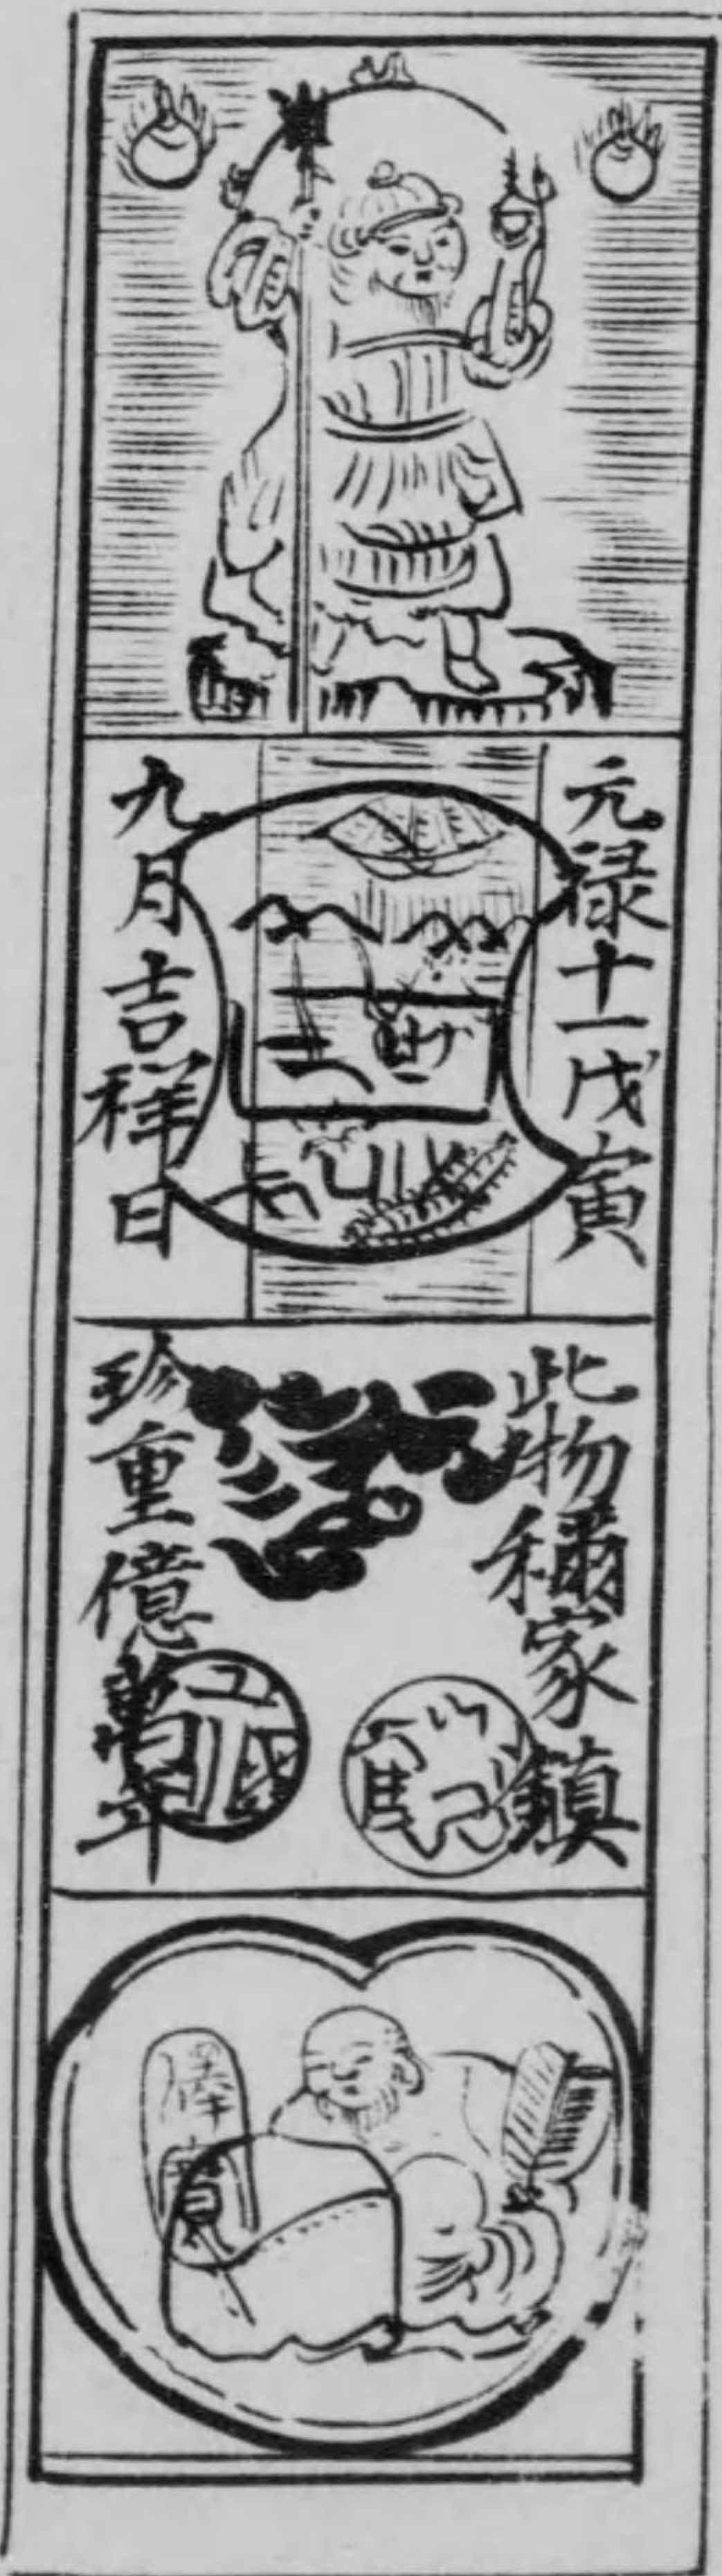 元禄十一戊寅
九月吉祥日
此物稱家鎮
珍重億萬年
寳